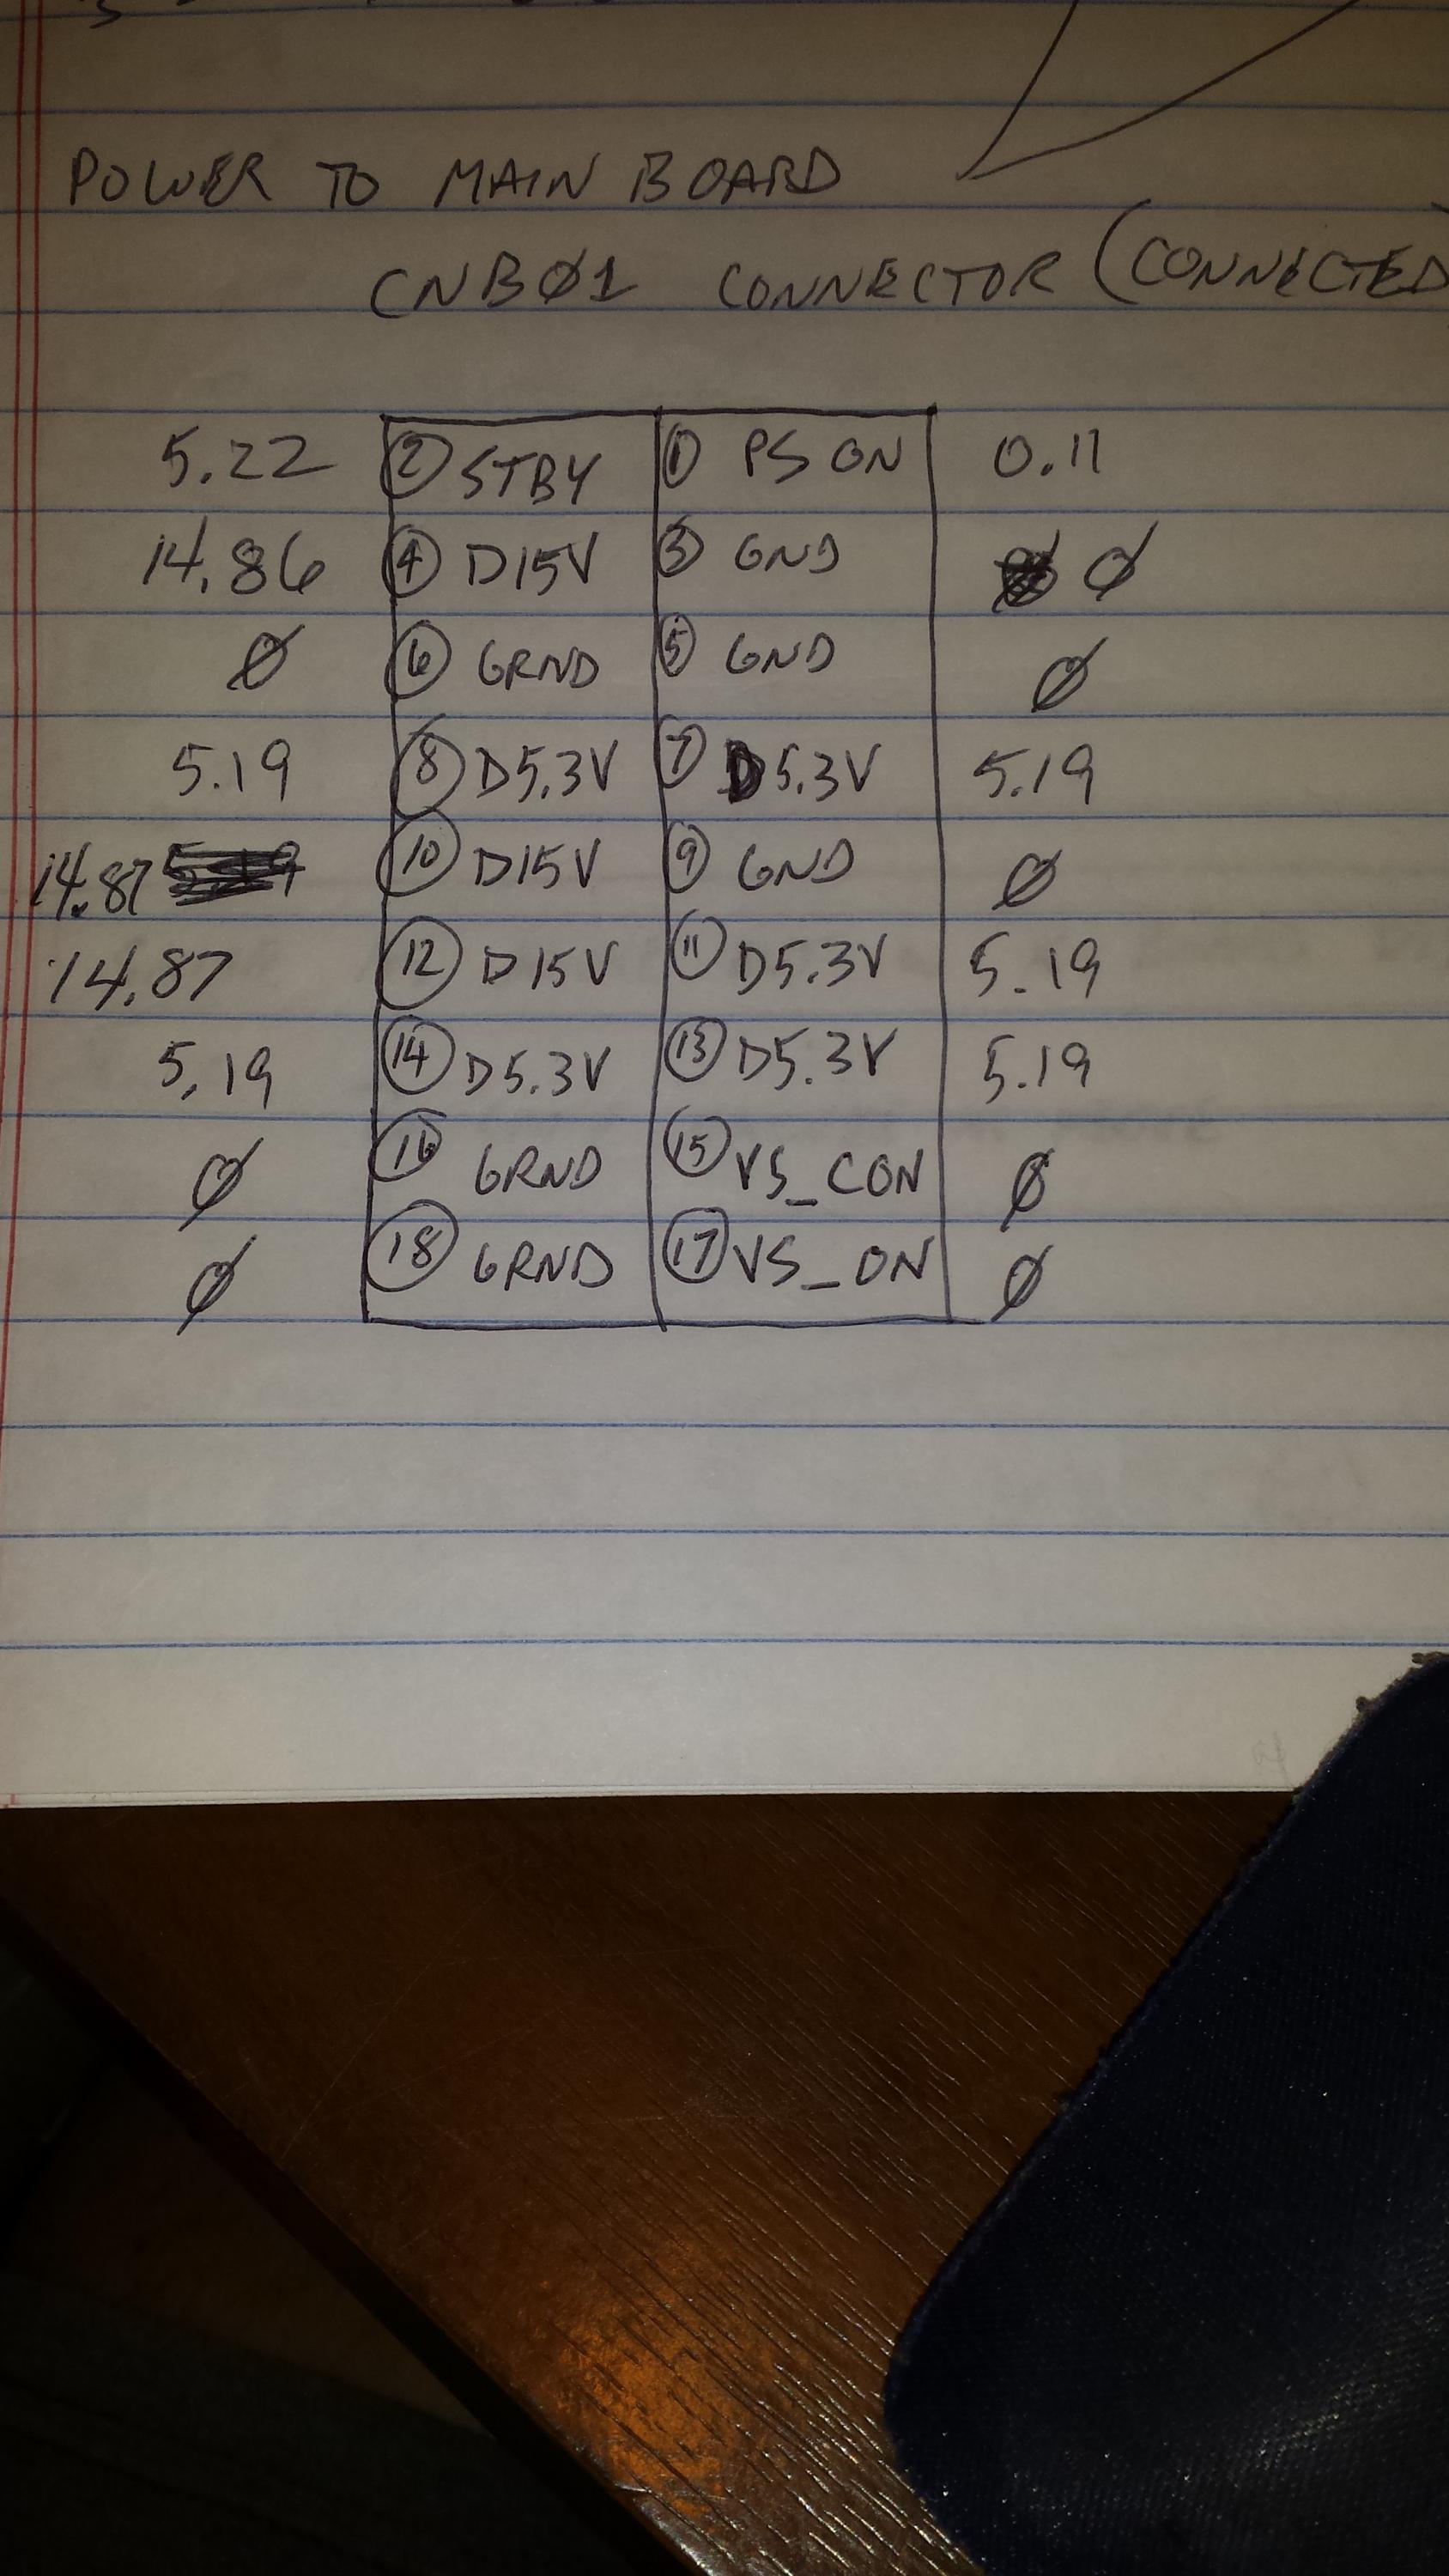 POWER TO MAIN BOARD
CNB01 CONNECTOR (CONNECTED
5.22 2 STBY 1 PS ON 0.11
14.86 4 D15V 3 GND Ø
Ø 6 GRND 5 GND Ø
5.19 8 D5.3V 7 D5.3V 5.19
14.87 10 D15V 9 GND Ø
14.87 12 D15V 11 D5.3V 5.19
5.19 14 D5.3V 13 D5.3V 5.19
Ø 16 GRND 15 VS_CON Ø
Ø 18 GRND 17 VS_ON Ø